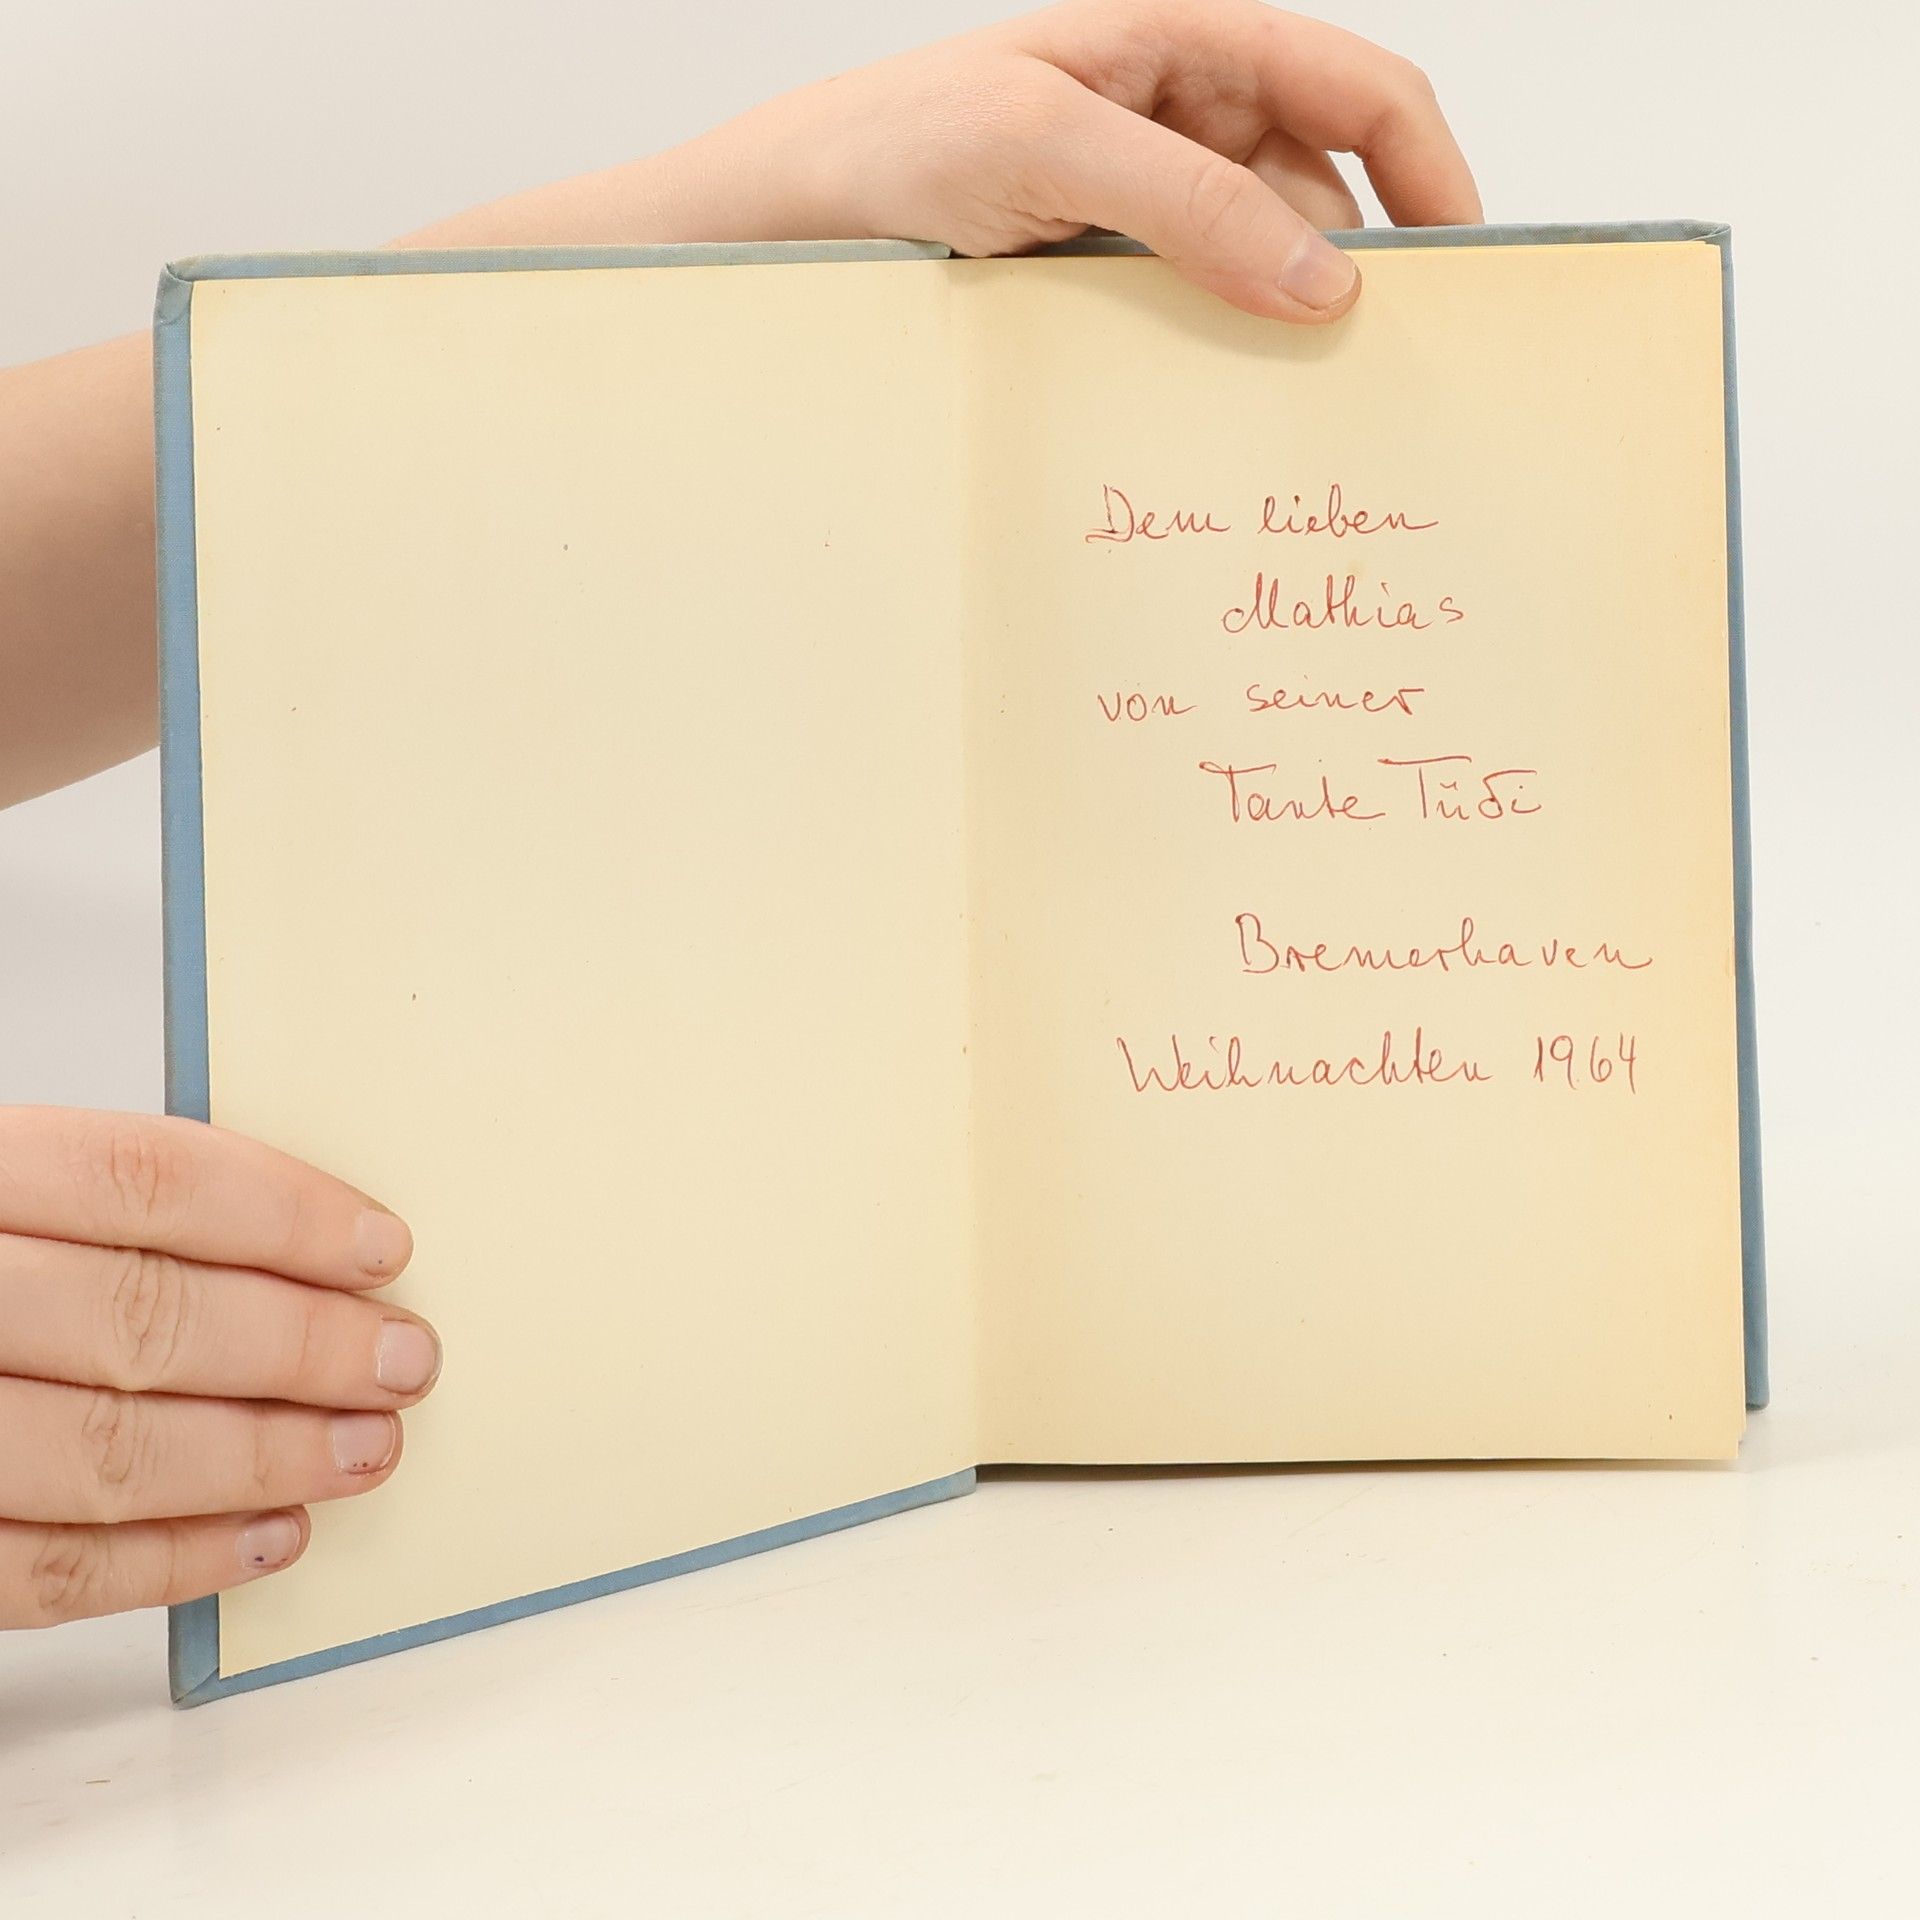 Dem lieben
Mathias
von seiner
Tante Tüdi
Bremerhaven
Weihnachten 1964